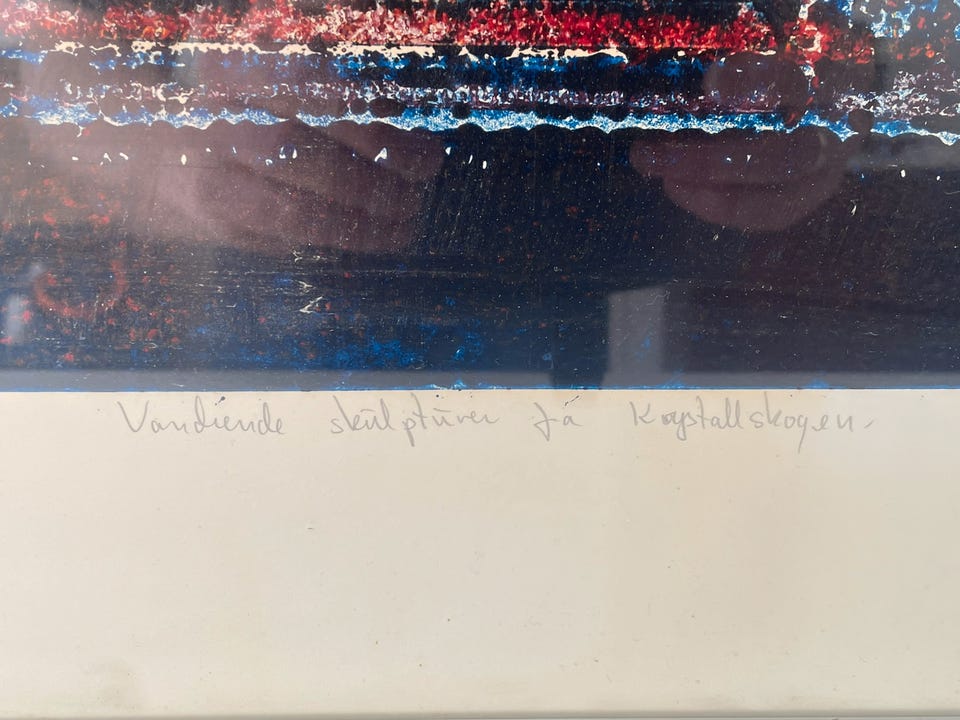 Vandrende skulpturer fra Krystallskogen.